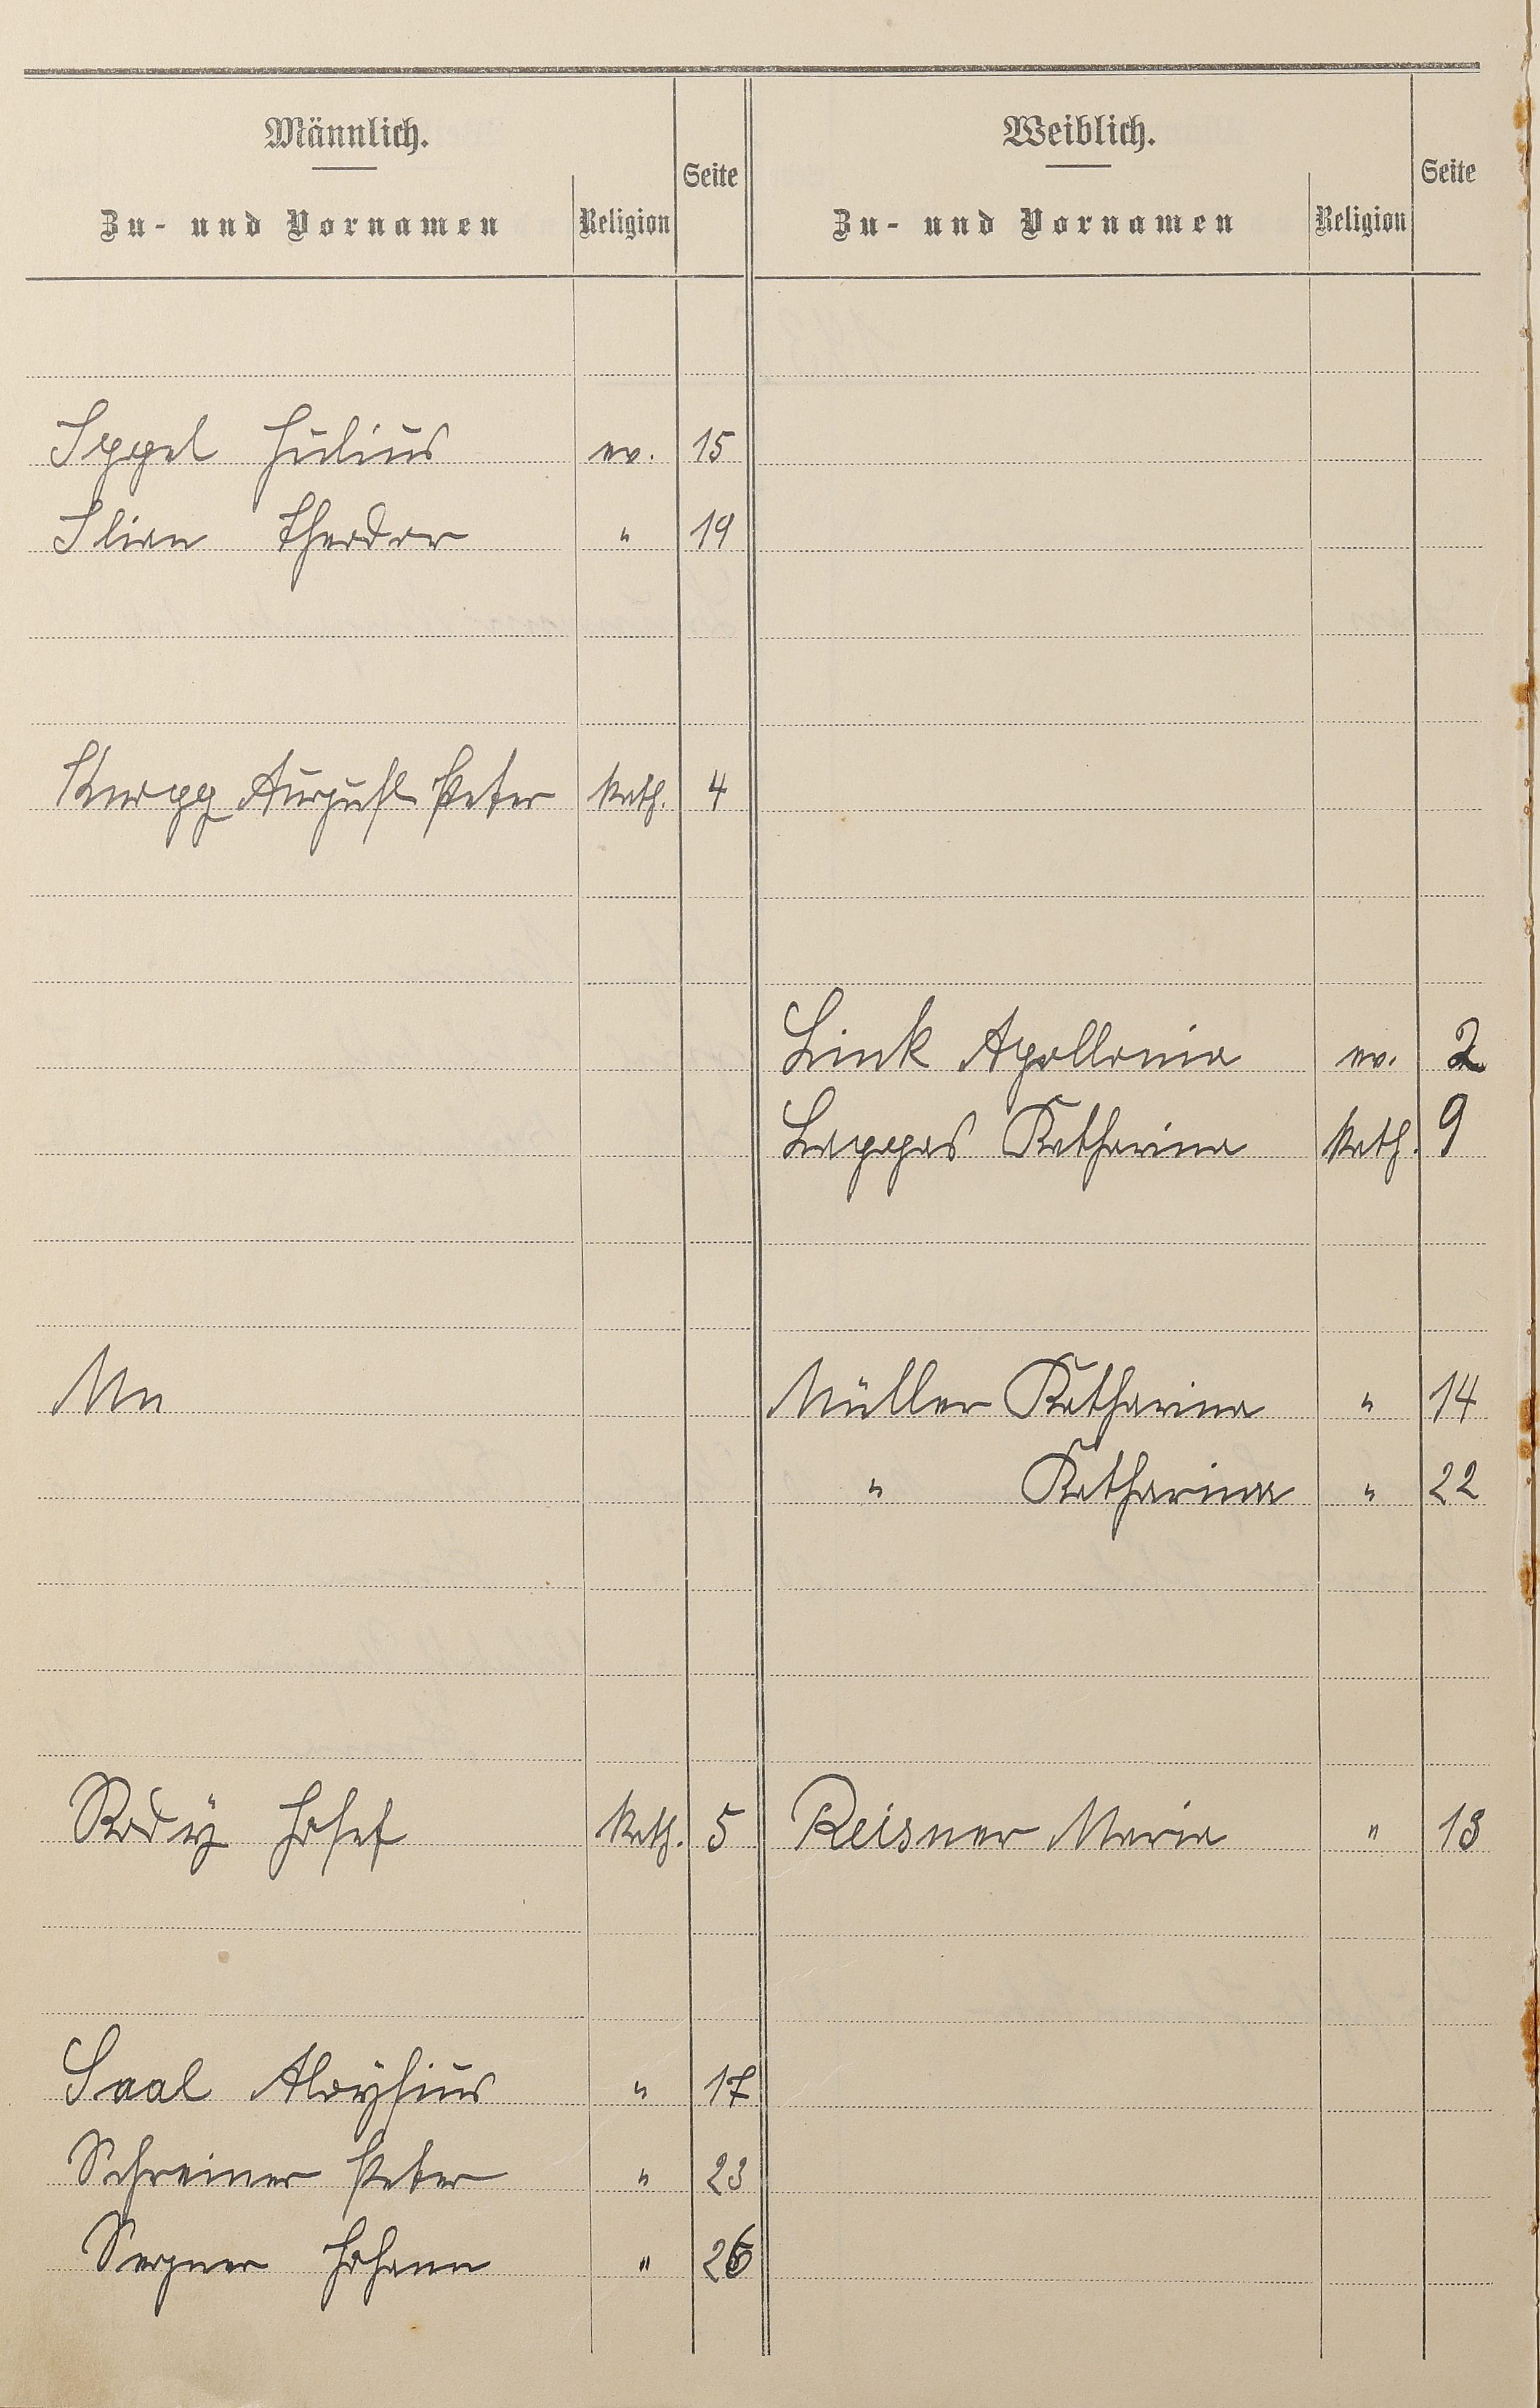 Männlich.
Zu- und Vornamen Religion Seite
Weiblich.
Zu- und Vornamen Religion Seite
Ippel Julius ev. 15
Ilian Theodor " 19
Knopp August Peter kath. 4
Link Apollonia ev. 2
Lappas Katharina kath. 9
Mu Müller Katharina " 14
" Katharina " 22
Rody Josef kath. 5 Reisner Maria " 13
Saal Aloysius " 17
Schreiner Peter " 23
Segner Johann " 26